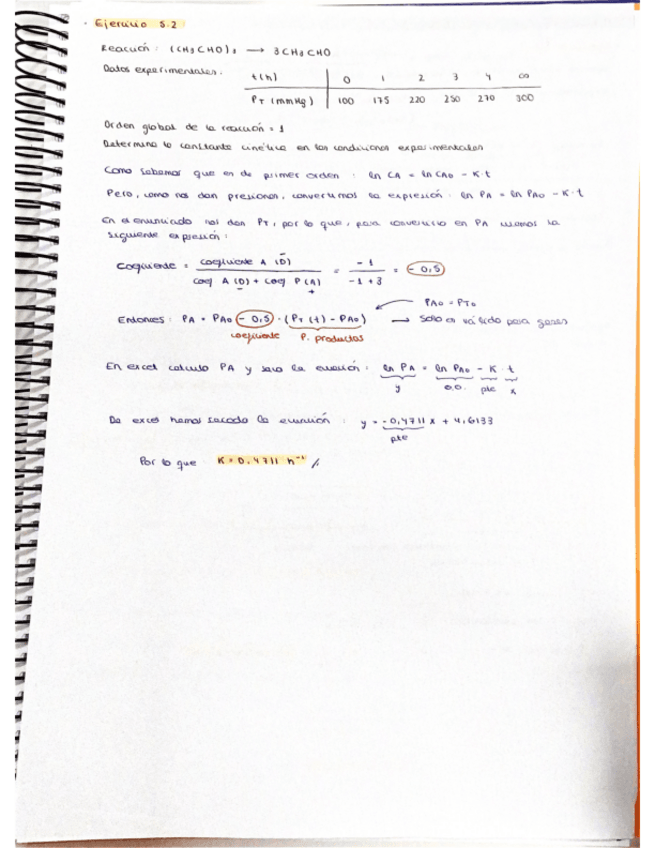 · Ejercicio 5.2
Reacción: (CH3CHO)3 → 3CH3CHO
Datos experimentales: t(h) 0 1 2 3 4 ∞
PT (mmHg) 100 175 220 250 270 300
Orden global de la reacción = 1
Determina la constante cinética en las condiciones experimentales
Como sabemos que es de primer orden : ln CA = ln CA0 - K·t
Pero, como nos dan presiones, convertimos la expresión : ln PA = ln PA0 - K·t
En el enunciado nos dan PT, por lo que, para convertirlo en PA usamos la
siguiente expresión :
Coeficiente = coeficiente A (-) / coef A (-) + coef P (A) + = -1 / -1 + 3 = -0,5
PA0 = PT0
Entonces : PA = PA0 - 0,5 · (PT (t) - PA0) → Solo es válido para gases
coeficiente P. productos
En excel calculo PA y saco la ecuación : ln PA = ln PA0 - K · t
y o.o. pte x
De excel hemos sacado la ecuación : y = -0,4711 x + 4,6133
pte
Por lo que K = 0,4711 h⁻¹ //